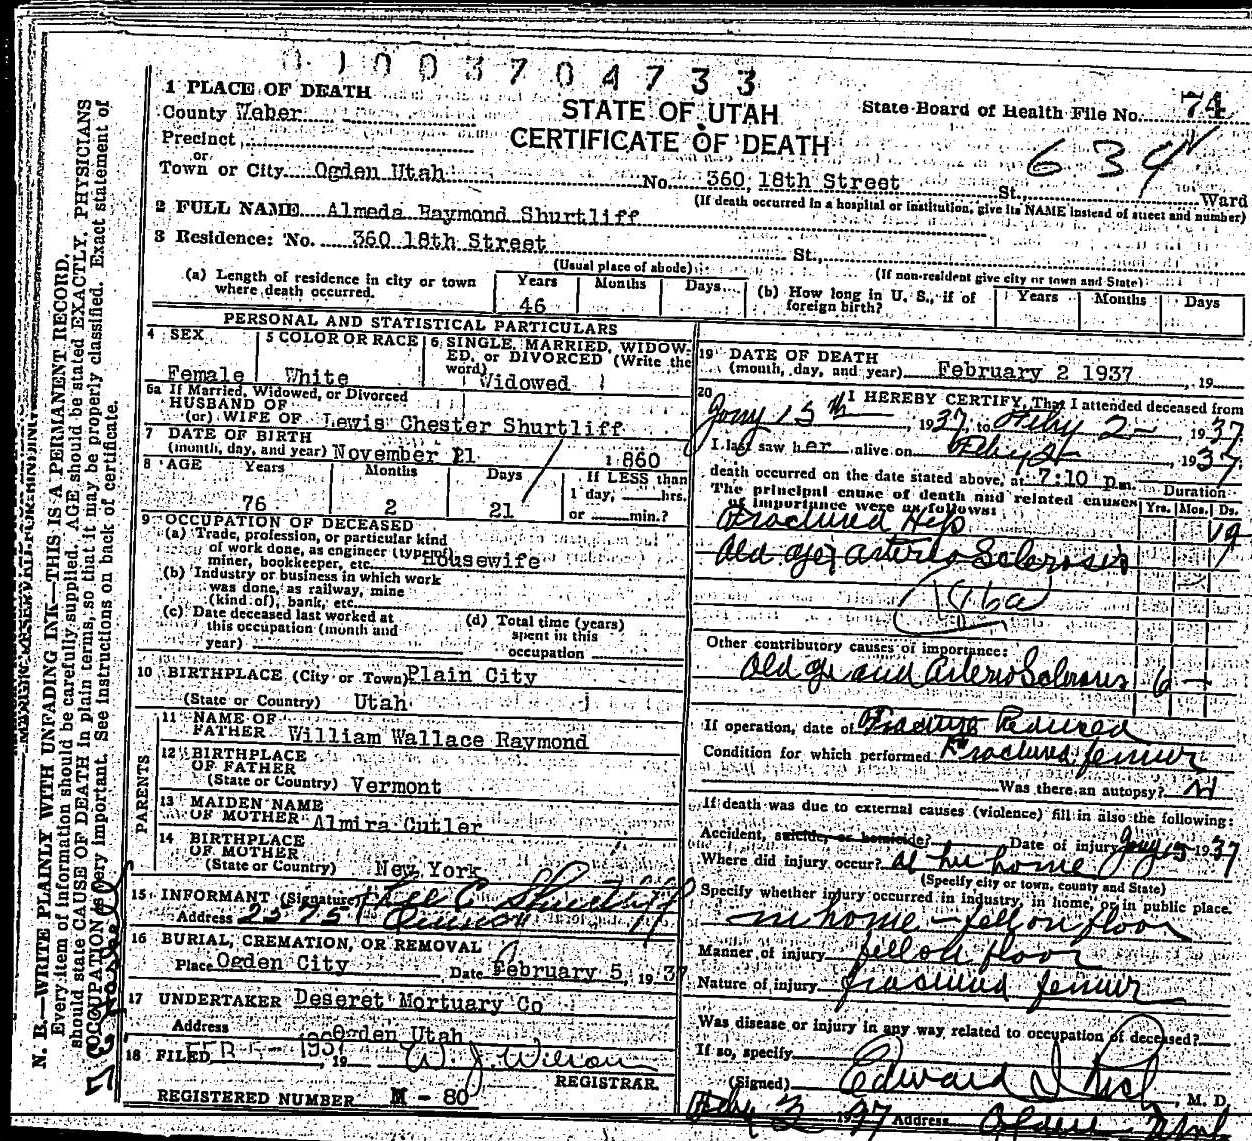 0100370 4733
1 PLACE OF DEATH
County Weber
STATE OF UTAH
State Board of Health File No. 74
Precinct
CERTIFICATE OF DEATH
634
or
Town or City Ogden Utah No. 360 18th Street St., Ward
(If death occurred in a hospital or institution, give its NAME instead of street and number)
2 FULL NAME Almeda Raymond Shurtliff
3 Residence: No. 360 18th Street St.,
(Usual place of abode) (If non-resident give city or town and State)
(a) Length of residence in city or town where death occurred. Years 46 Months Days
(b) How long in U. S., if of foreign birth? Years Months Days
PERSONAL AND STATISTICAL PARTICULARS
4 SEX Female
5 COLOR OR RACE White
6 SINGLE, MARRIED, WIDOWED, or DIVORCED (Write the word) Widowed
6a If Married, Widowed, or Divorced
HUSBAND OF
(or) WIFE OF Lewis Chester Shurtliff
7 DATE OF BIRTH
(month, day, and year) November 11 1860
8 AGE Years 76 Months 2 Days 21
If LESS than
1 day, hrs.
or min.?
9 OCCUPATION OF DECEASED
(a) Trade, profession, or particular kind
of work done, as engineer (type of)
miner, bookkeeper, etc. Housewife
(b) Industry or business in which work
was done, as railway, mine
(kind of), bank, etc.
(c) Date deceased last worked at
this occupation (month and
year)
(d) Total time (years)
spent in this
occupation
10 BIRTHPLACE (City or Town) Plain City
(State or Country) Utah
PARENTS
11 NAME OF
FATHER William Wallace Raymond
12 BIRTHPLACE
OF FATHER
(State or Country) Vermont
13 MAIDEN NAME
OF MOTHER Almira Cutler
14 BIRTHPLACE
OF MOTHER
(State or Country) New York
15 INFORMANT (Signature) C Shurtliff
Address 2575
16 BURIAL, CREMATION, OR REMOVAL
Place Ogden City Date February 5, 1937
17 UNDERTAKER Deseret Mortuary Co
Address Ogden Utah
18 FILED FEB 5 - 1937 19 W. J. Wilson
REGISTRAR
REGISTERED NUMBER M - 80
19 DATE OF DEATH
(month, day, and year) February 2 1937, 19
20 I HEREBY CERTIFY, That I attended deceased from
Jany 15th, 1937, to Feby 2, 1937
I last saw her alive on Feby 2, 1937
death occurred on the date stated above, at 7:10 pm.
The principal cause of death and related causes
of importance were as follows:
Duration
Yrs. Mos. Ds.
Fractured Hip 19
Old age arterio Sclerosis
186a
Other contributory causes of importance:
Old age and Arterio Sclerosis 6
If operation, date of Fracture Reduced
Condition for which performed Fractured femur
Was there an autopsy?
If death was due to external causes (violence) fill in also the following:
Accident, suicide, or homicide? Date of injury Jany 15 1937
Where did injury occur? at her home
(Specify city or town, county and State)
Specify whether injury occurred in industry, in home, or in public place.
in home - fell on floor
Manner of injury fell on floor
Nature of injury fractured femur
Was disease or injury in any way related to occupation of deceased?
If so, specify
(Signed) Edward I Rich, M. D.
Feby 3 1937 Address Ogden Utah
N. B.—WRITE PLAINLY WITH UNFADING INK—THIS IS A PERMANENT RECORD.
Every item of information should be carefully supplied. AGE should be stated EXACTLY. PHYSICIANS
should state CAUSE OF DEATH in plain terms, so that it may be properly classified. Exact statement of
OCCUPATION is very important. See instructions on back of certificate.